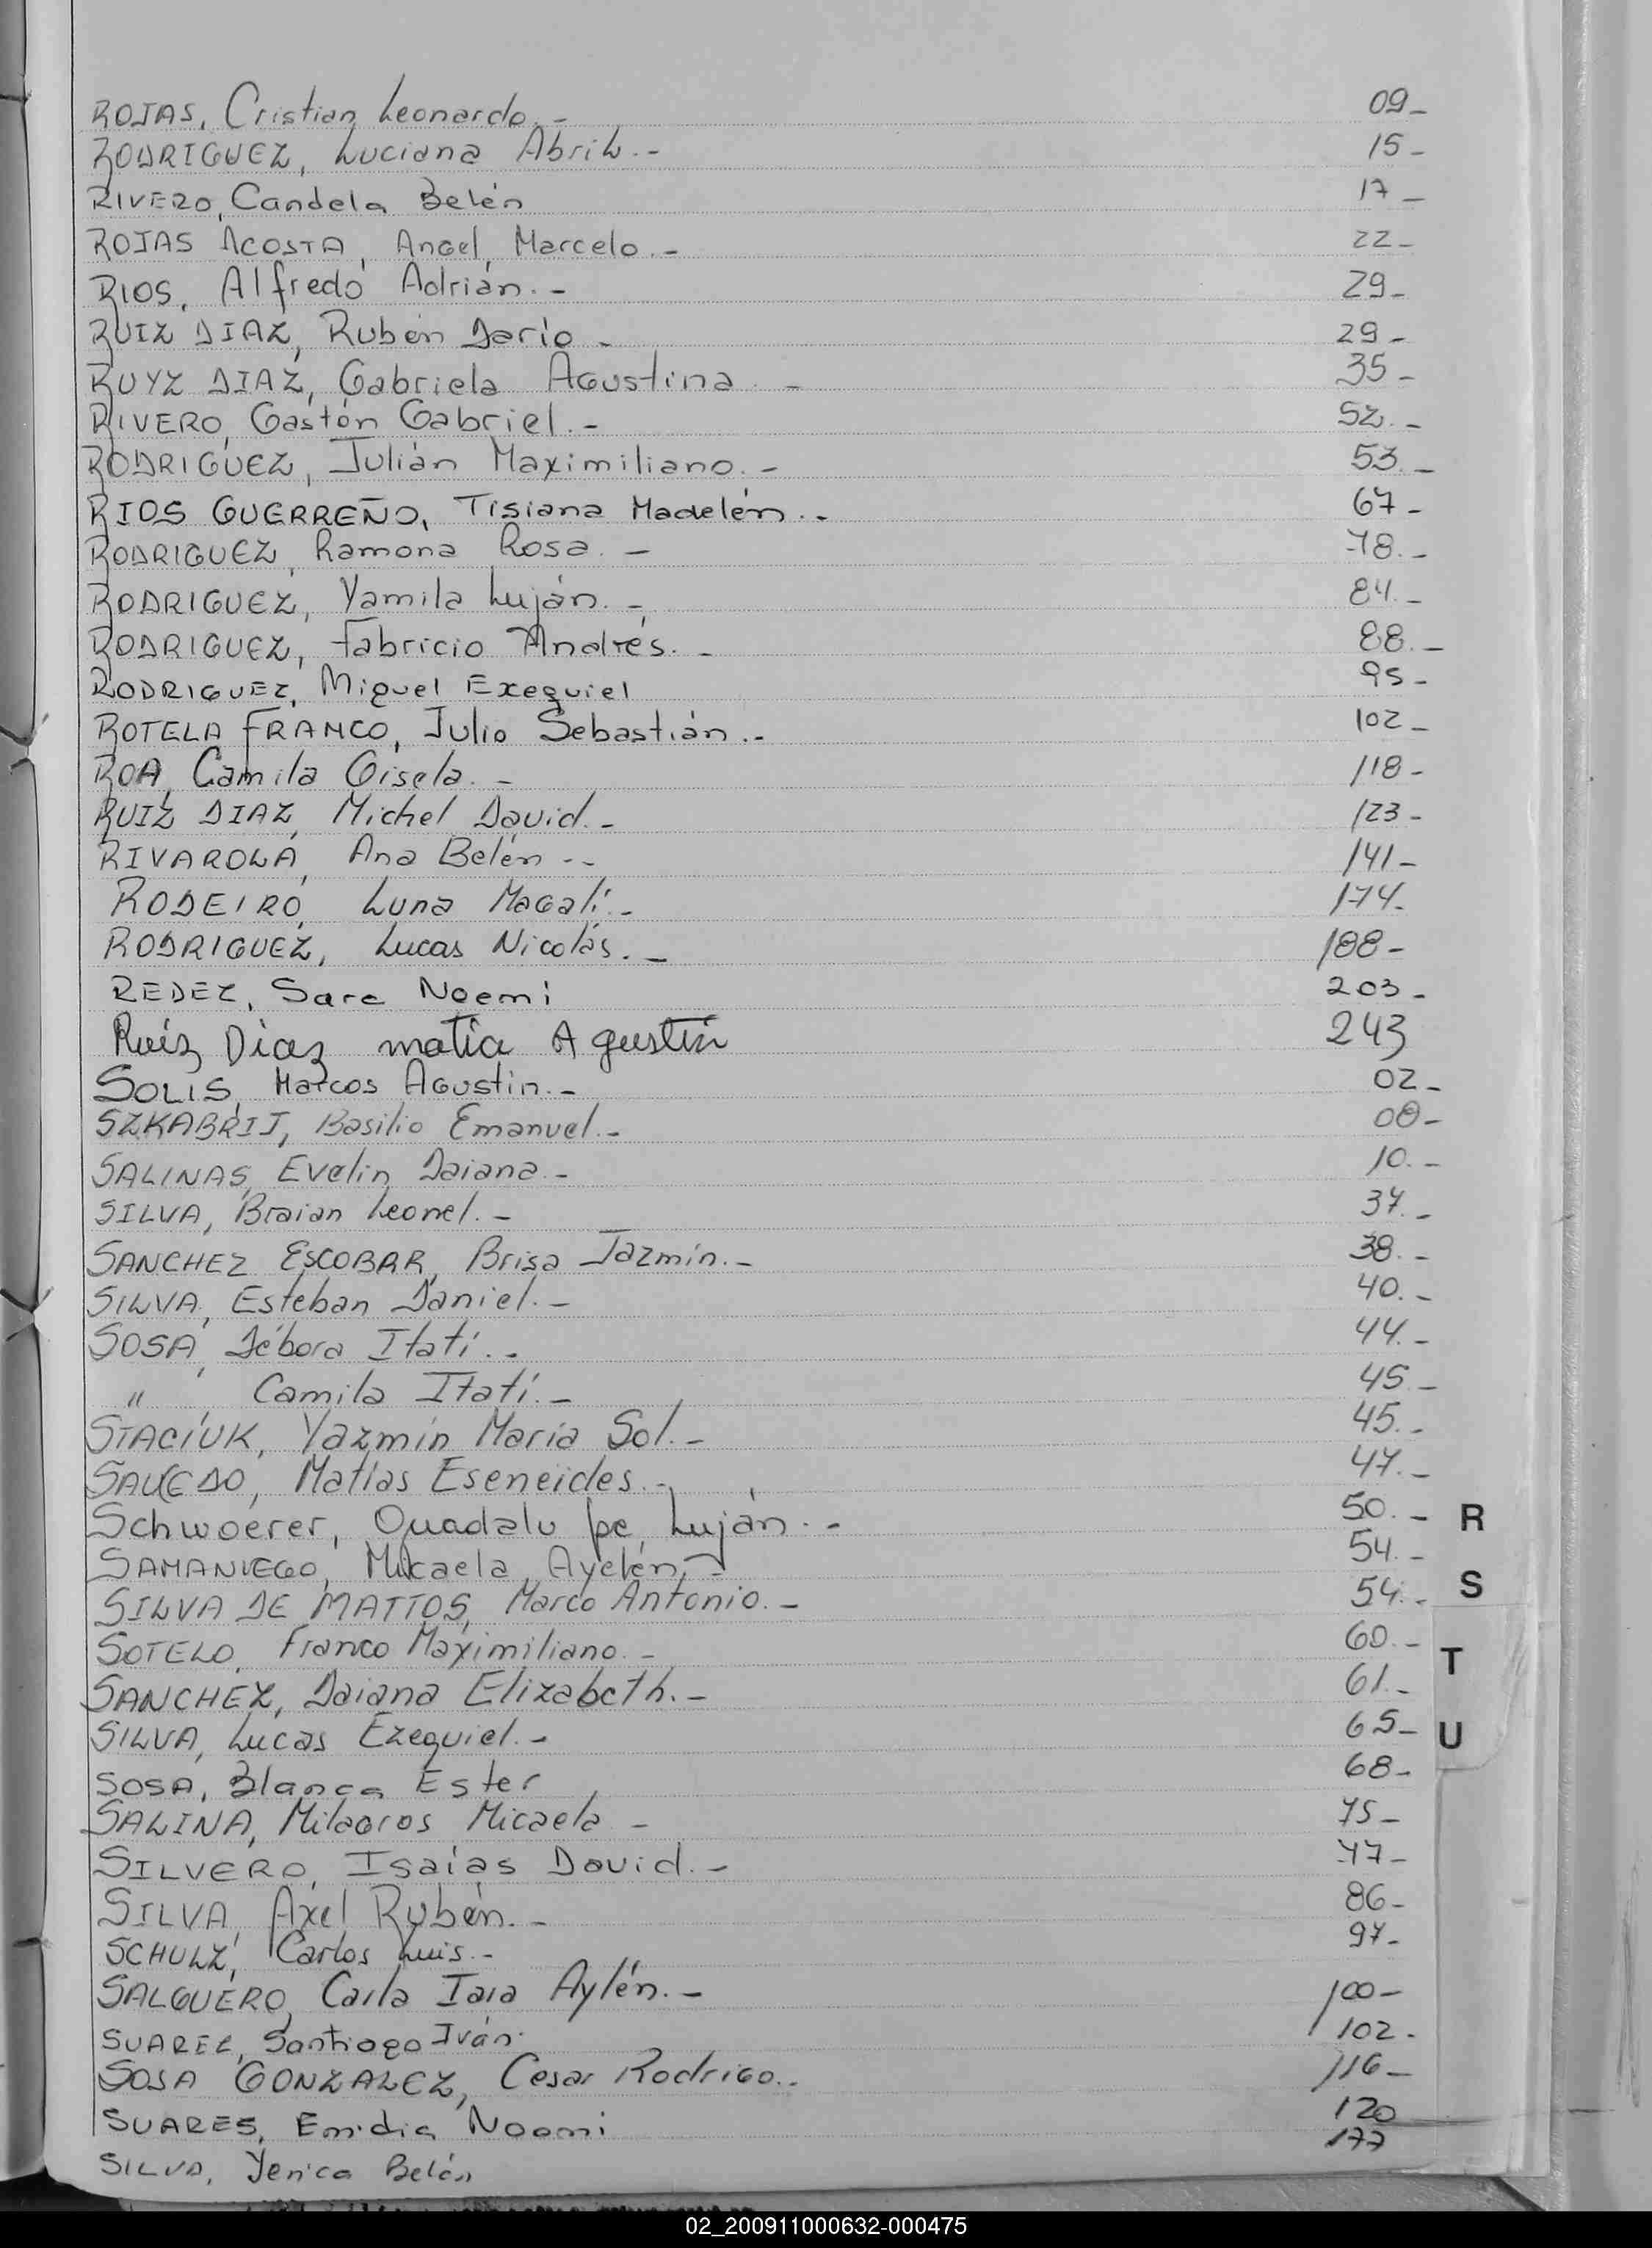 ROJAS, Cristian Leonardo.- 09-
RODRIGUEZ, Luciana Abril.- 15-
RIVERO, Candela Belén 17-
ROJAS ACOSTA, Angel, Marcelo.- 22-
RIOS, Alfredo Adrián.- 29-
RUIZ DIAZ, Rubén Dario - 29-
RUYZ DIAZ, Gabriela Agustina - 35-
RIVERO, Gastón Gabriel.- 52.-
RODRIGUEZ, Julián Maximiliano.- 53.-
RIOS GUERREÑO, Tisiana Madelén.- 67-
RODRIGUEZ, Ramona Rosa.- 78.-
RODRIGUEZ, Yamila Luján.- 84.-
RODRIGUEZ, Fabricio Andrés.- 88.-
RODRIGUEZ, Miguel Exequiel 95-
ROTELA FRANCO, Julio Sebastián.- 102-
ROA, Camila Gisela.- 118-
RUIZ DIAZ, Michel David.- 123-
RIVAROLA, Ana Belén.- 141-
RODEIRO, Luna Magalí.- 174-
RODRIGUEZ, Lucas Nicolás.- 188-
REDEZ, Sara Noemi 203-
Ruiz Diaz matia Agustin 243
SOLIS, Marcos Agustin.- 02-
SZKABRIJ, Basilio Emanuel.- 08-
SALINAS, Evelin Daiana.- 10.-
SILVA, Braian Leonel.- 37.-
SANCHEZ ESCOBAR, Brisa Jazmín.- 38.-
SILVA, Esteban Daniel.- 40.-
SOSA, Débora Itatí.- 44.-
" , Camila Itatí.- 45-
STACIUK, Yazmín María Sol.- 45.-
SAUCEDO, Matías Eseneides.- 47.-
Schwoerer, Guadalupe Luján.- 50.-
SAMANIEGO, Micaela Ayelén.- 54.-
SILVA DE MATTOS, Marco Antonio.- 54.-
SOTELO, Franco Maximiliano.- 60.-
SANCHEZ, Daiana Elizabeth.- 61.-
SILVA, Lucas Ezequiel.- 65-
SOSA, Blanca Ester 68-
SALINA, Milagros Micaela - 75-
SILVERO, Isaías David.- 77-
SILVA, Axel Rubén.- 86-
SCHULZ, Carlos Luis.- 97-
SALGUERO, Carla Iara Aylén.- 100-
SUAREZ, Santiago Iván. 102-
SOSA GONZALEZ, Cesar Rodrigo.. 116-
SUARES, Emidia Noemi 120
SILVA, Yenica Belén 177
R
S
T
U
02_200911000632-000475